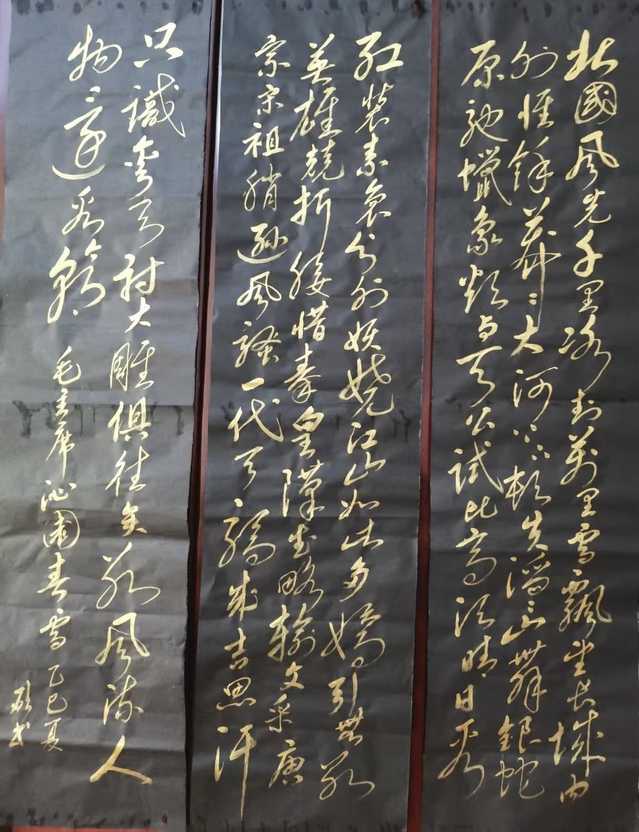 北國風光千里冰封萬里雪飄望長城內
外惟餘莽〻大河上下頓失滔〻山舞銀蛇
原馳蠟象欲與天公試比高須晴日看
紅裝素裹分外妖嬈江山如此多嬌引無數
英雄競折腰惜秦皇漢武略輸文采唐
宗宋祖稍遜風騷一代天驕成吉思汗
只識彎弓射大雕俱往矣數風流人
物還看今朝
毛主席沁園春雪乙巳夏
书